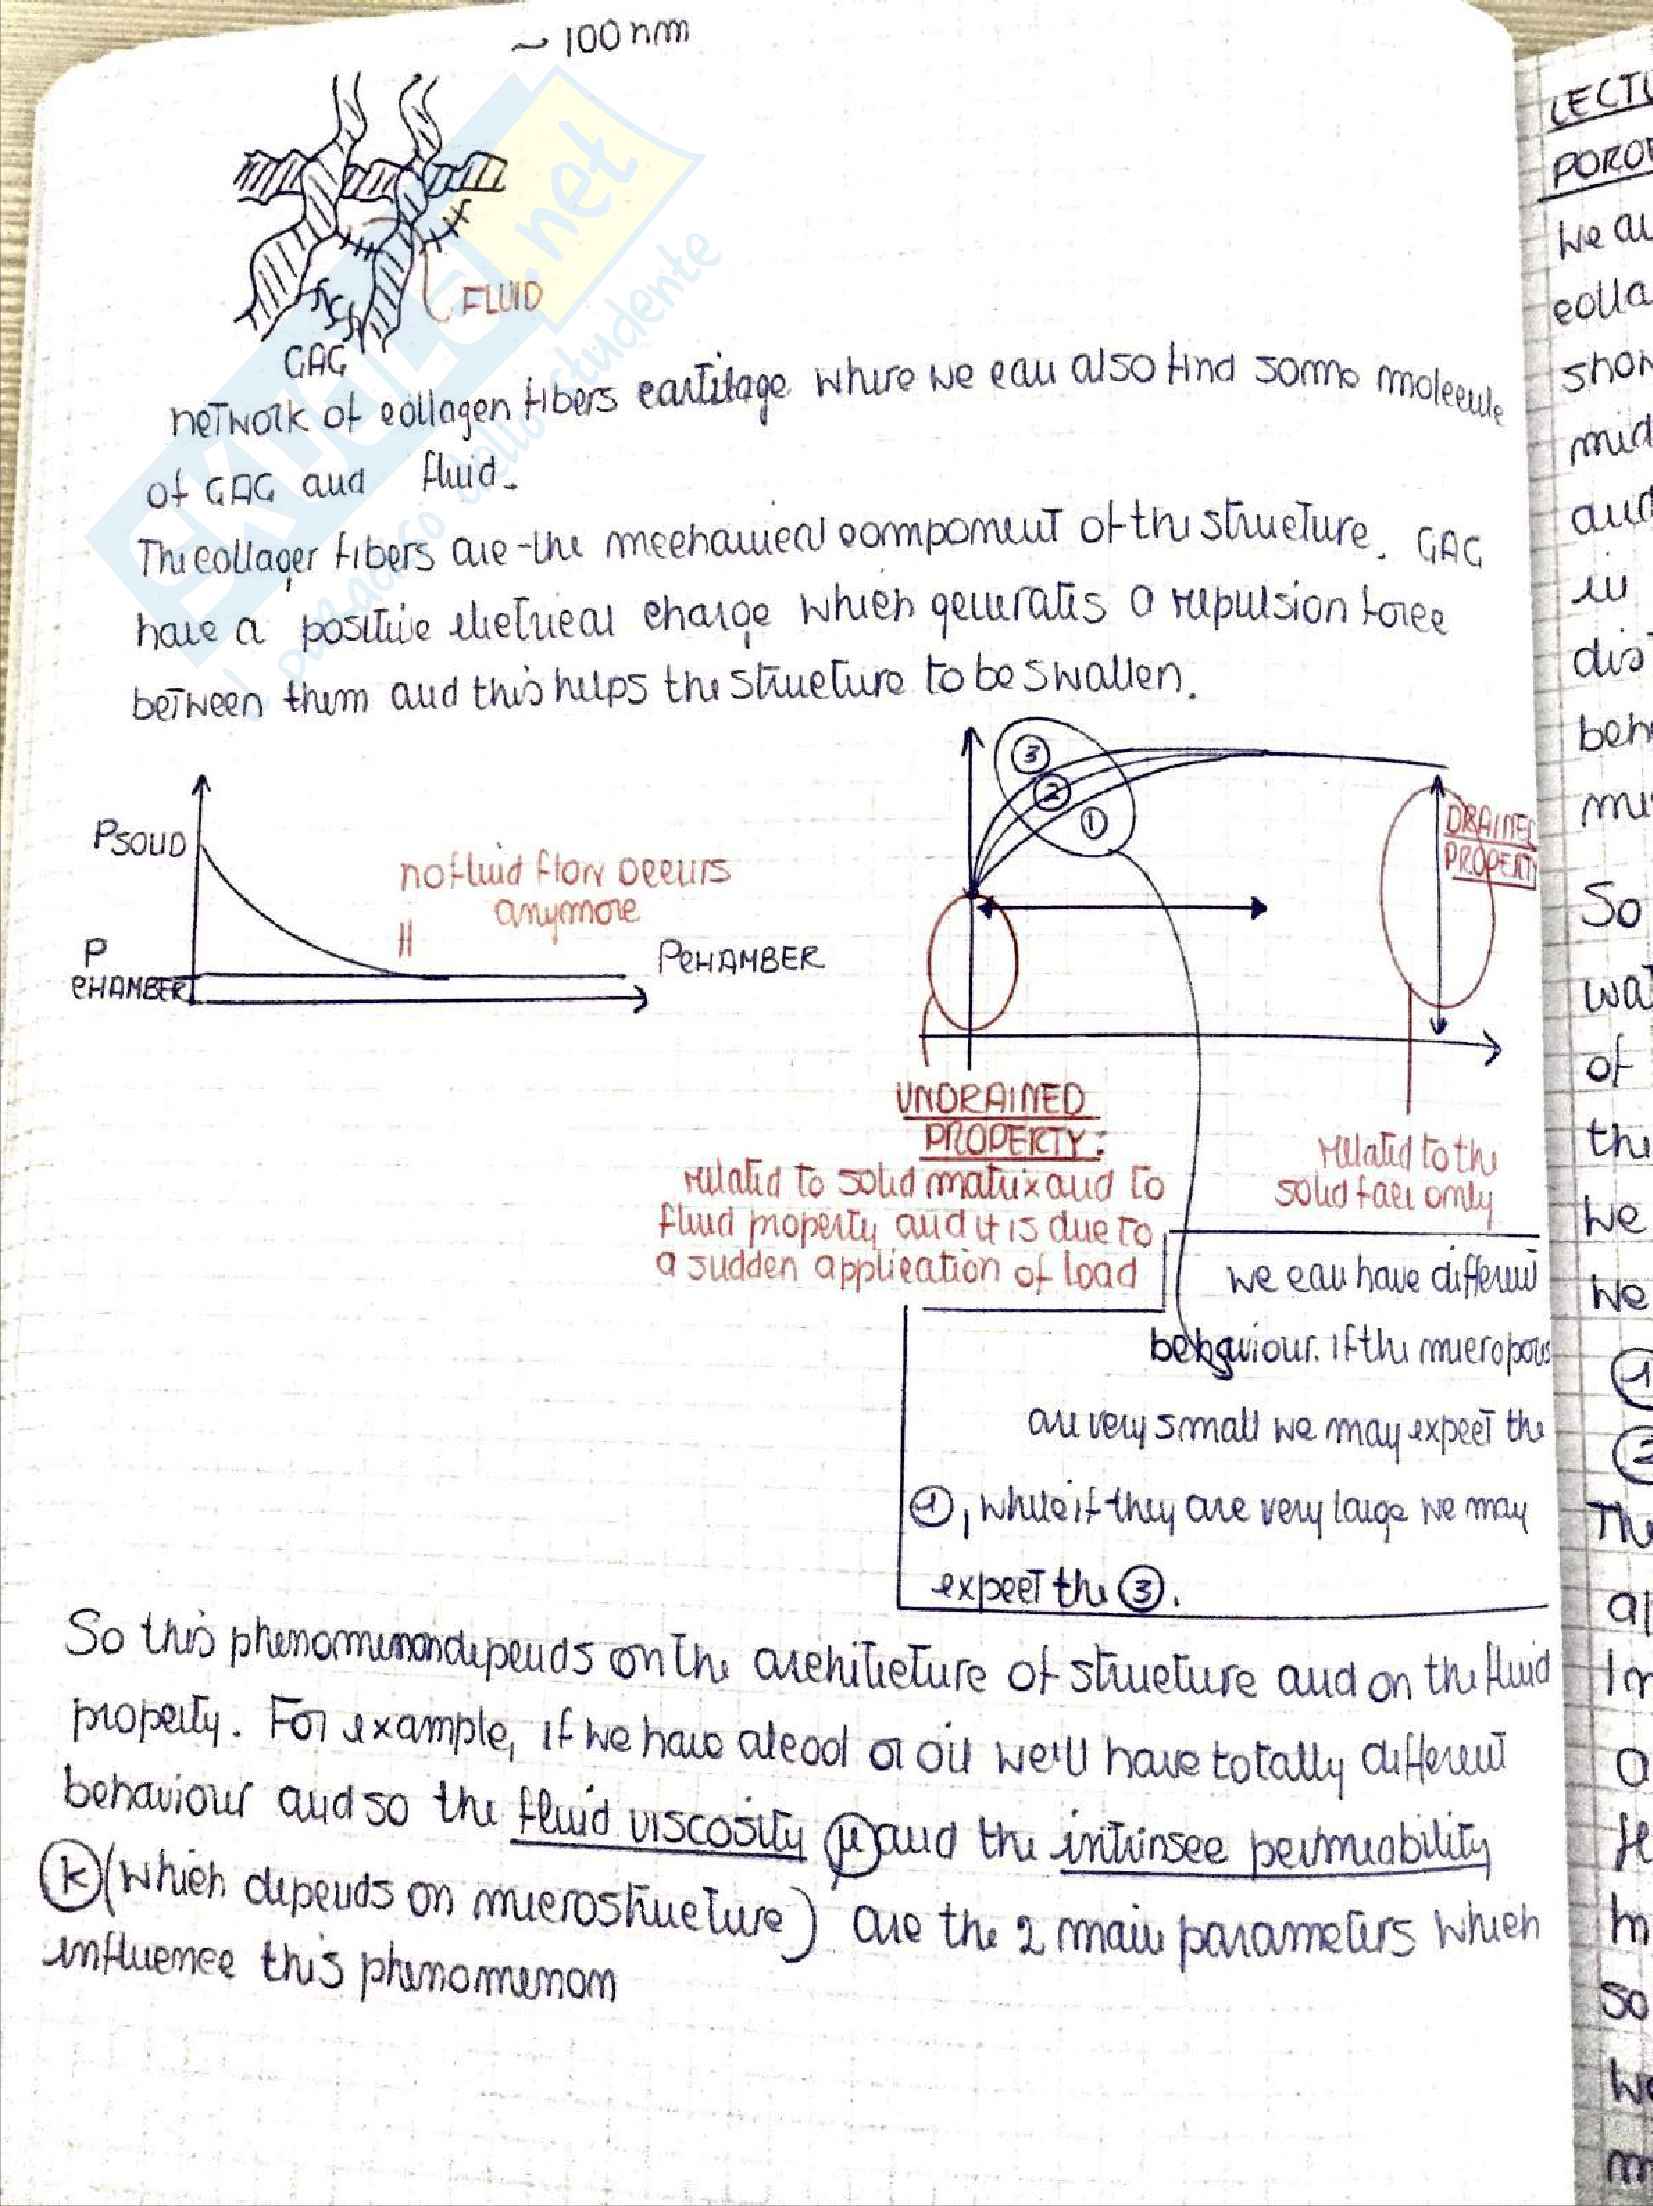 ~ 100 nm
FLUID
GAG
network of collagen fibers cartilage where we can also find some molecule
of GAG and fluid.
The collager fibers are the mechanical component of the structure. GAG
have a positive eletrical charge which generates a repulsion force
between them and this helps the structure to be swallen.
PSOLID
no fluid flow occurs
anymore
P
CHAMBER
PCHAMBER
3
2
1
DRAINED
PROPERTY
UNDRAINED
PROPERTY:
related to solid matrix and to
fluid property and it is due to
a sudden application of load
related to the
solid face only
we can have different
behaviour. if the micropores
are very small we may expect the
1, while if they are very large we may
expect the 3.
So this phenomenon depends on the architecture of structure and on the fluid
property. For example, if we have alcool or oil we'll have totally different
behaviour and so the fluid viscosity μ and the intrinsec permeability
k (which depends on microstructure) are the 2 main parameters which
influence this phenomenon
LECTU
POROE
we
colla
shor
mid
and
in
dis
beh
mi
So
wat
of
the
we
we
1
2
The
al
In
a
fe
m
so
we
m
SKUOLA.net
il paradiso dello studente